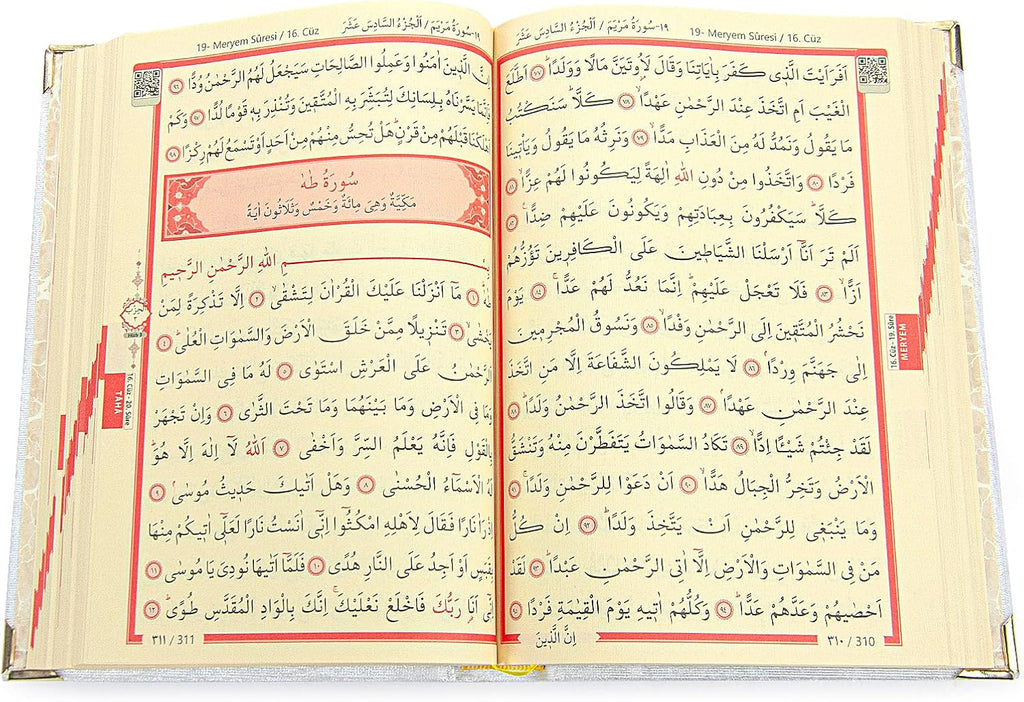 ١٩-سُورَةُ مَرْيَمَ / اَلْجُزْءُ السَّادِسَ عَشَرَ 19- Meryem Sûresi / 16. Cüz
اَفَرَاَيْتَ الَّذ۪ي كَفَرَ بِاٰيَاتِنَا وَقَالَ لَاُو۫تَيَنَّ مَالًا وَوَلَدًاۜ ﴿٧٧﴾ اَطَّلَعَ
الْغَيْبَ اَمِ اتَّخَذَ عِنْدَ الرَّحْمٰنِ عَهْدًاۙ ﴿٧٨﴾ كَلَّاۜ سَنَكْتُبُ
مَا يَقُولُ وَنَمُدُّ لَهُ مِنَ الْعَذَابِ مَدًّاۙ ﴿٧٩﴾ وَنَرِثُهُ مَا يَقُولُ وَيَأْت۪ينَا
فَرْدًا ﴿٨٠﴾ وَاتَّخَذُوا مِنْ دُونِ اللّٰهِ اٰلِهَةً لِيَكُونُوا لَهُمْ عِزًّاۙ ﴿٨١﴾
كَلَّاۜ سَيَكْفُرُونَ بِعِبَادَتِهِمْ وَيَكُونُونَ عَلَيْهِمْ ضِدًّا۟ ﴿٨٢﴾
اَلَمْ تَرَ اَنَّٓا اَرْسَلْنَا الشَّيَاط۪ينَ عَلَى الْكَافِر۪ينَ تَؤُزُّهُمْ
اَزًّاۙ ﴿٨٣﴾ فَلَا تَعْجَلْ عَلَيْهِمْۜ اِنَّمَا نَعُدُّ لَهُمْ عَدًّاۚ ﴿٨٤﴾ يَوْمَ
نَحْشُرُ الْمُتَّق۪ينَ اِلَى الرَّحْمٰنِ وَفْدًاۙ ﴿٨٥﴾ وَنَسُوقُ الْمُجْرِم۪ينَ
اِلٰى جَهَنَّمَ وِرْدًاۢ ﴿٨٦﴾ لَا يَمْلِكُونَ الشَّفَاعَةَ اِلَّا مَنِ اتَّخَذَ
عِنْدَ الرَّحْمٰنِ عَهْدًاۢ ﴿٨٧﴾ وَقَالُوا اتَّخَذَ الرَّحْمٰنُ وَلَدًاۜ ﴿٨٨﴾
لَقَدْ جِئْتُمْ شَيْـًٔا اِدًّاۙ ﴿٨٩﴾ تَكَادُ السَّمٰوَاتُ يَتَفَطَّرْنَ مِنْهُ وَتَنْشَقُّ
الْاَرْضُ وَتَخِرُّ الْجِبَالُ هَدًّاۙ ﴿٩٠﴾ اَنْ دَعَوْا لِلرَّحْمٰنِ وَلَدًاۚ ﴿٩١﴾
وَمَا يَنْبَغ۪ي لِلرَّحْمٰنِ اَنْ يَتَّخِذَ وَلَدًاۜ ﴿٩٢﴾ اِنْ كُلُّ
مَنْ فِي السَّمٰوَاتِ وَالْاَرْضِ اِلَّٓا اٰتِي الرَّحْمٰنِ عَبْدًاۜ ﴿٩٣﴾ لَقَدْ
اَحْصٰيهُمْ وَعَدَّهُمْ عَدًّاۜ ﴿٩٤﴾ وَكُلُّهُمْ اٰت۪يهِ يَوْمَ الْقِيٰمَةِ فَرْدًا ﴿٩٥﴾
اِنَّ الَّذ۪ينَ
٣١٠ / 310
16. Cüz - 19. Sûre
MERYEM
19- Meryem Sûresi / 16. Cüz ١٩-سُورَةُ مَرْيَمَ / اَلْجُزْءُ السَّادِسَ عَشَرَ
الَّذ۪ينَ اٰمَنُوا وَعَمِلُوا الصَّالِحَاتِ سَيَجْعَلُ لَهُمُ الرَّحْمٰنُ وُدًّا ﴿٩٦﴾
فَاِنَّمَا يَسَّرْنَاهُ بِلِسَانِكَ لِتُبَشِّرَ بِهِ الْمُتَّق۪ينَ وَتُنْذِرَ بِه۪ قَوْمًا لُدًّا ﴿٩٧﴾ وَكَمْ
اَهْلَكْنَا قَبْلَهُمْ مِنْ قَرْنٍۜ هَلْ تُحِسُّ مِنْهُمْ مِنْ اَحَدٍ اَوْ تَسْمَعُ لَهُمْ رِكْزًا ﴿٩٨﴾
سُورَةُ طٰهٰ
مَكِّيَّةٌ وَهِيَ مِائَةٌ وَخَمْسٌ وَثَلَاثُونَ اٰيَةً
بِسْمِ اللّٰهِ الرَّحْمٰنِ الرَّح۪يمِ
طٰهٰ ﴿١﴾ مَٓا اَنْزَلْنَا عَلَيْكَ الْقُرْاٰنَ لِتَشْقٰىۙ ﴿٢﴾ اِلَّا تَذْكِرَةً لِمَنْ
يَخْشٰىۙ ﴿٣﴾ تَنْز۪يلًا مِمَّنْ خَلَقَ الْاَرْضَ وَالسَّمٰوَاتِ الْعُلٰىۜ ﴿٤﴾
اَلرَّحْمٰنُ عَلَى الْعَرْشِ اسْتَوٰى ﴿٥﴾ لَهُ مَا فِي السَّمٰوَاتِ
وَمَا فِي الْاَرْضِ وَمَا بَيْنَهُمَا وَمَا تَحْتَ الثَّرٰى ﴿٦﴾ وَاِنْ تَجْهَرْ
بِالْقَوْلِ فَاِنَّهُ يَعْلَمُ السِّرَّ وَاَخْفٰى ﴿٧﴾ اَللّٰهُ لَٓا اِلٰهَ اِلَّا هُوَۜ
لَهُ الْاَسْمَٓاءُ الْحُسْنٰى ﴿٨﴾ وَهَلْ اَتٰيكَ حَد۪يثُ مُوسٰىۢ ﴿٩﴾
اِذْ رَاٰ نَارًا فَقَالَ لِاَهْلِهِ امْكُثُٓوا اِنّ۪ٓي اٰنَسْتُ نَارًا لَعَلّ۪ٓي اٰت۪يكُمْ مِنْهَا
بِقَبَسٍ اَوْ اَجِدُ عَلَى النَّارِ هُدًى ﴿١٠﴾ فَلَمَّٓا اَتٰيهَا نُودِيَ يَا مُوسٰى ﴿١١﴾
اِنّ۪ٓي اَنَا۬ رَبُّكَ فَاخْلَعْ نَعْلَيْكَۚ اِنَّكَ بِالْوَادِ الْمُقَدَّسِ طُوًىۜ ﴿١٢﴾
٣١١ / 311
16. Cüz - 20. Sûre
TAHA